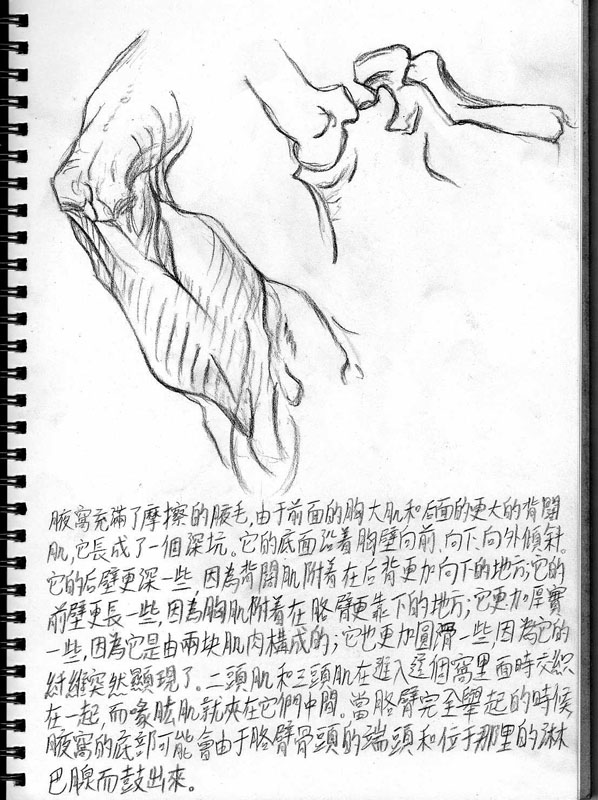 腋窩充滿了摩擦的腋毛,由于前面的胸大肌和后面的更大的背闊
肌,它長成了一個深坑。它的底面沿着胸壁向前、向下向外傾斜。
它的后壁更深一些,因為背闊肌附着在后背更加向下的地方;它的
前壁更長一些,因為胸肌附着在胳臂更靠下的地方;它更加厚實
一些,因為它是由兩块肌肉構成的;它也更加圓滑一些,因為它的
纖維突然顯現了。二頭肌和三頭肌在進入這個窩里面時交織
在一起,而喙肱肌就夾在它們中間。當胳臂完全舉起的時候
腋窩的底部可能會由于胳臂骨頭的端頭和位于那里的淋
巴腺而鼓出來。